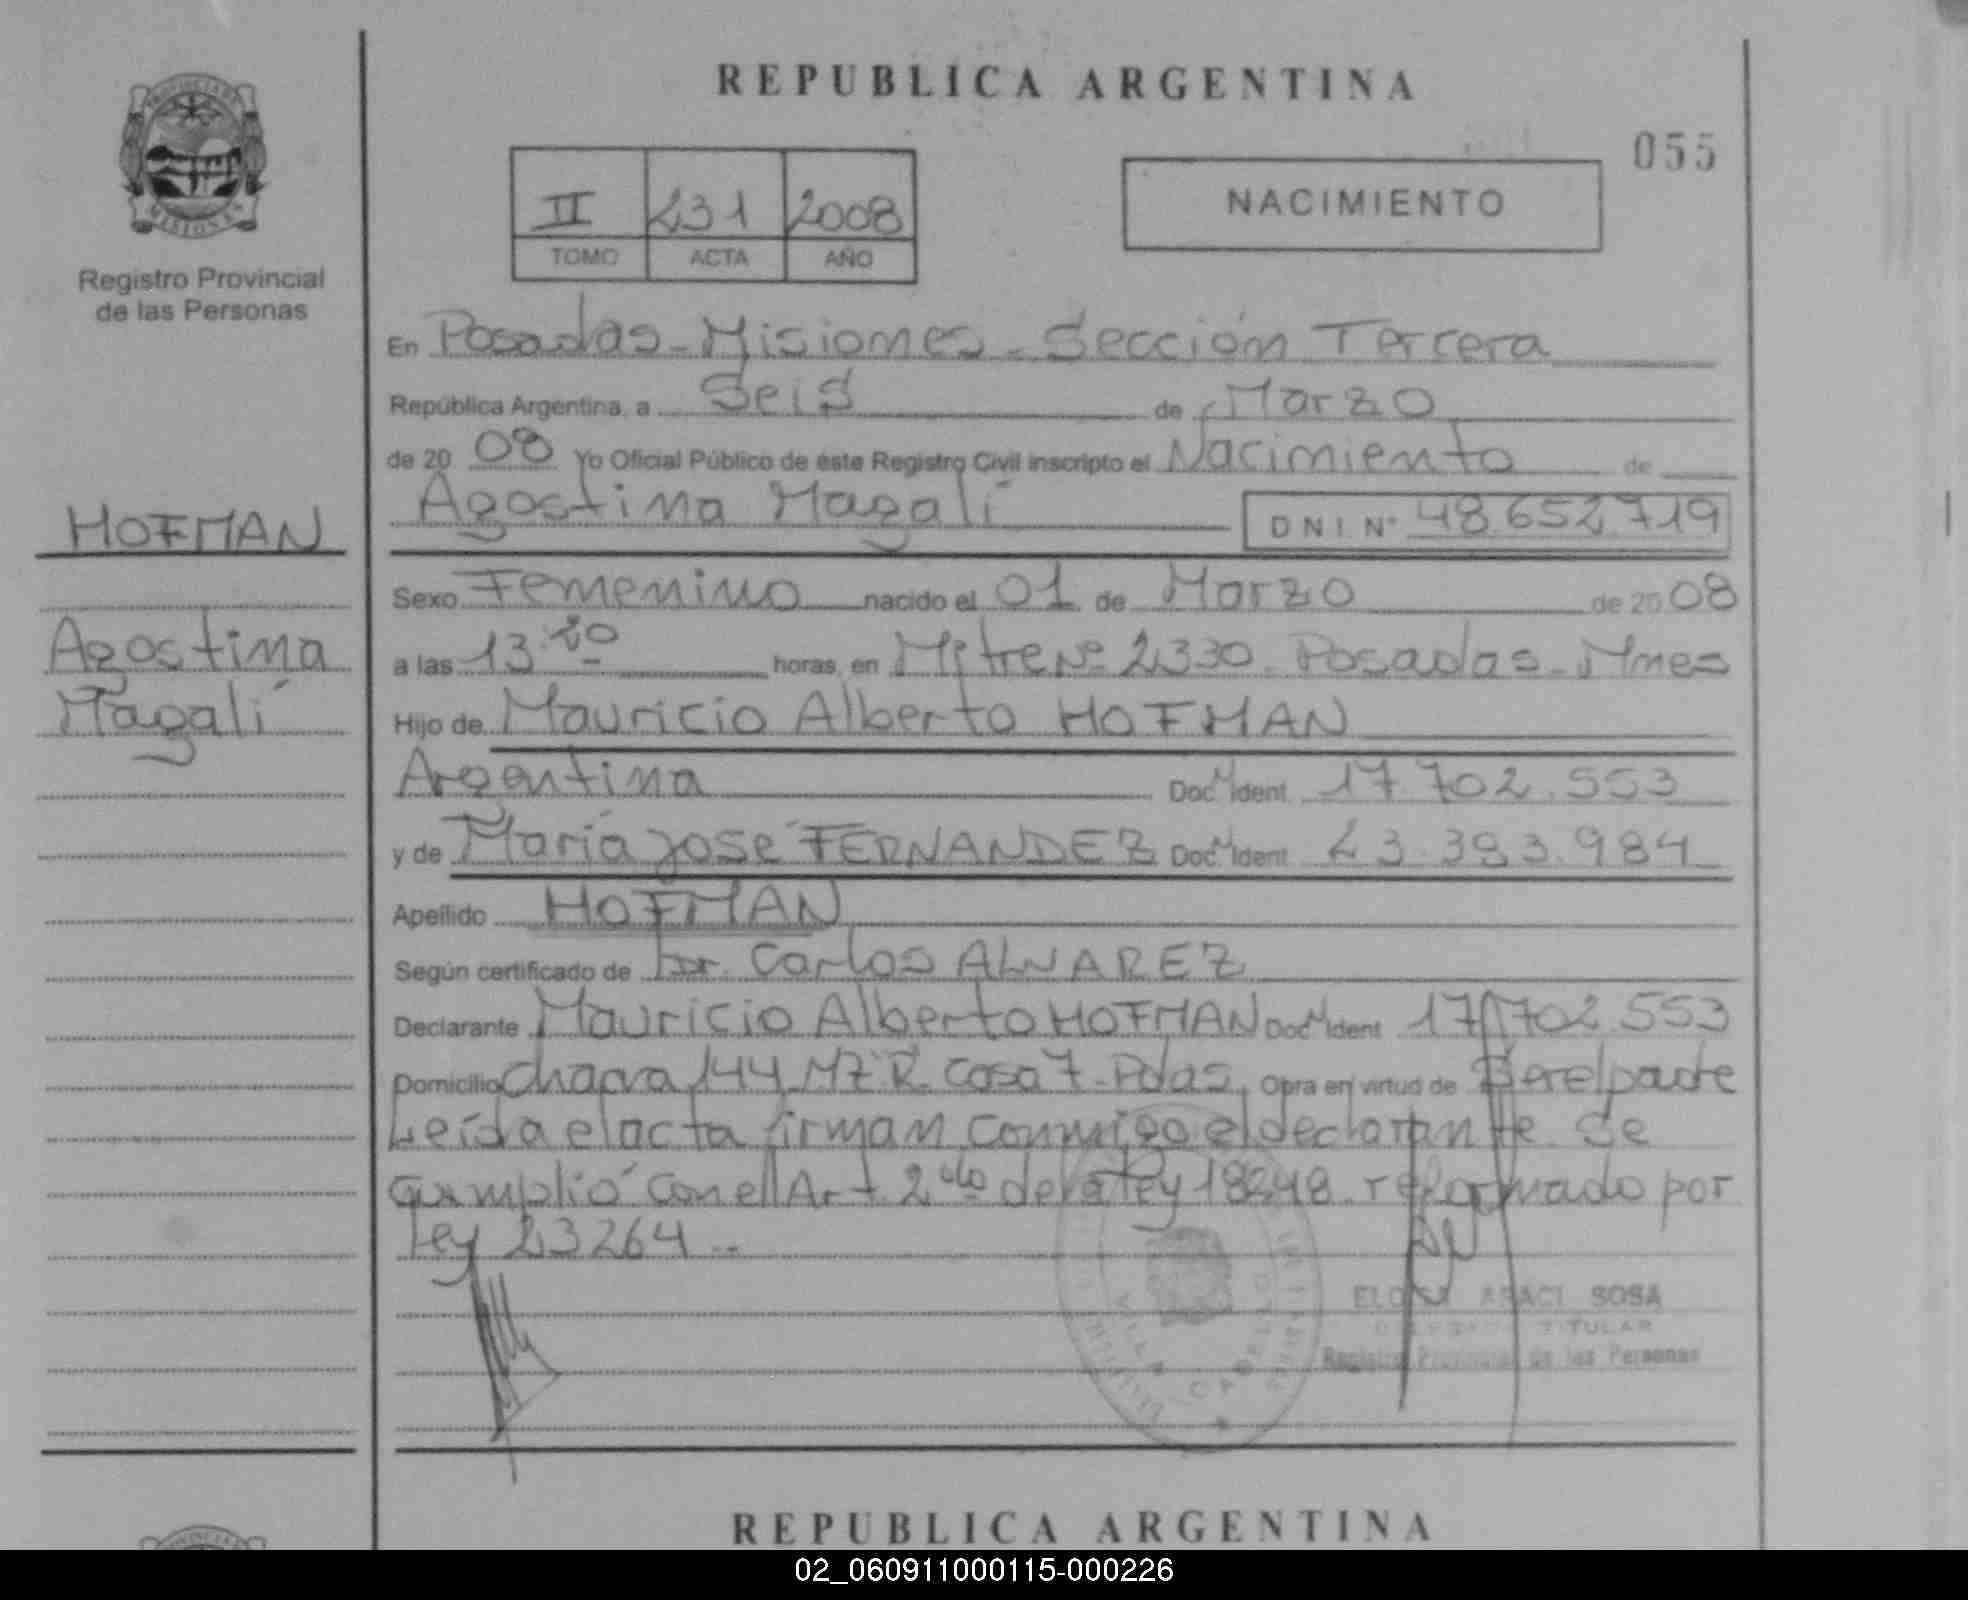 REPUBLICA ARGENTINA
055
PROVINCIA DE
MISIONES
Registro Provincial
de las Personas
II 231 2008
TOMO ACTA AÑO
NACIMIENTO
En Posadas - Misiones - Sección Tercera
República Argentina, a Seis de Marzo
de 20 08 Yo Oficial Público de éste Registro Civil inscripto el Nacimiento de
Agostina Magalí D N I. Nº 48.652.719
HOFMAN
Agostina
Magalí
Sexo Femenino nacido el 01 de Marzo de 20 08
a las 13:20 horas, en Mitre Nº 2330 - Posadas - Mnes
Hijo de Mauricio Alberto HOFMAN
Argentina Doc. Ident. 17.702.553
y de María José FERNANDEZ Doc. Ident. 23.393.984
Apellido HOFMAN
Según certificado de Dr. Carlos ALVAREZ
Declarante Mauricio Alberto HOFMAN Doc. Ident 17.702.553
Domicilio Chacra 144 MZ R Casa 7 - Pdas. Obra en virtud de Ser el padre
Leída el acta firman conmigo el declarante. Se
cumplió con el Art. 2do de la Ley 18248 reformado por
Ley 23264 --
VILLA CABELLO
ELOISA ARACI SOSA
TITULAR
Registro Provincial de las Personas
REPUBLICA ARGENTINA
02_060911000115-000226